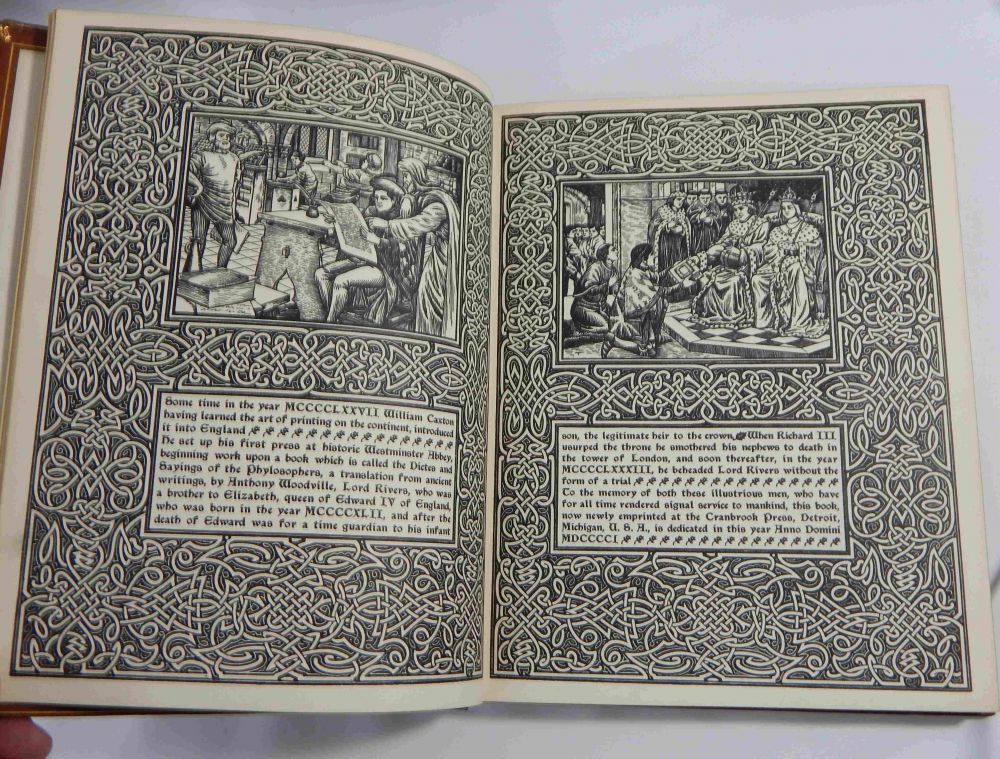 Some time in the year MCCCCLXXVII William Caxton
having learned the art of printing on the continent, introduced
it into England
He set up his first press at historic Westminster Abbey,
beginning work upon a book which is called the Dictes and
Sayings of the Phylosophers, a translation from ancient
writings, by Anthony Woodville, Lord Rivers, who was
a brother to Elizabeth, queen of Edward IV of England,
who was born in the year MCCCCXLII, and after the
death of Edward was for a time guardian to his infant
son, the legitimate heir to the crown. When Richard III.
usurped the throne he smothered his nephews to death in
the tower of London, and soon thereafter, in the year
MCCCCLXXXIII, he beheaded Lord Rivers without the
form of a trial
To the memory of both these illustrious men, who have
for all time rendered signal service to mankind, this book,
now newly emprinted at the Cranbrook Press, Detroit,
Michigan, U. S. A., is dedicated in this year Anno Domini
MDCCCCI